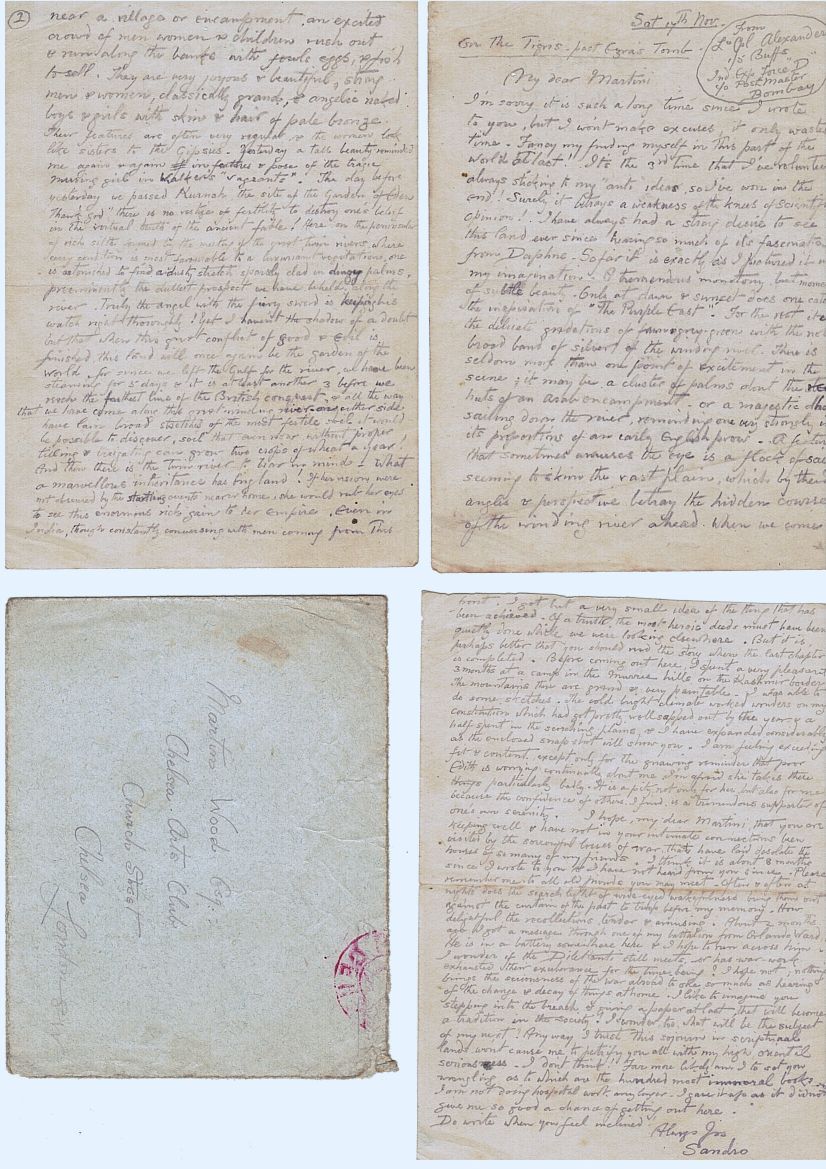 Sat 17th Nov.
On The Tigris - past Ezra's Tomb
From
L/Cpl Alexander
1/5 Buffs
Ind. Exp. Force "D"
c/o Postmaster
Bombay
My dear Martini
I'm sorry it is such a long time since I wrote
to you, but I won't make excuses, it only wastes
time. Fancy my finding myself in this part of the
World at last! It's the 3rd time that I've volunteered
always sticking to my anti ideas, so I've won in the
end! Surely it betrays a weakness of the knees of scientific
opinion! I have always had a strong desire to see
this land ever since hearing so much of its fascination
from Daphne. So far it is exactly as I pictured it in
my imagination. A tremendous monotony, but
of subtle beauty. Only at dawn & sunset does one catch
the inspiration of "The Purple East". For the rest it
the delicate gradations of fawn & grey-greens with the
broad band of silver of the winding river. There is
seldom more than one point of excitement in the
scene; it may be a cluster of palms dont the
huts of an Arab encampment - or a majestic
sailing down the river, reminding one very strongly in
its proportions of an early English prow. A feature
that sometimes amuses the eye is a flock of sails
seeming to skim the vast plain, which by their
angles & perspective betray the hidden course
of the winding river ahead. When we come
2
near a village or encampment, an excited
crowd of men women & children rush out
& run along the banks with fowls eggs, & fish
to sell. They are very joyous & beautiful, strong
men & women, classically grand, & angelic naked
boys & girls with skin & hair of pale bronze.
Their features are often very regular, & the women look
like sisters to the Gipsies. Yesterday a tall beauty reminded
me again & again in features & pose of the tragic
nursing girl in Walker's "Vagrants". The day before
yesterday we passed Kurnah the site of the Garden of Eden
Thank God there is no vestige of fertility to destroy one's belief
in the virtual truth of the ancient fable! Here on the peninsular
of rich silth formed by the meeting of the great twin rivers, where
every condition is most favourable to a luxuriant vegetation, one
is astonished to find a dusty stretch sparsely clad in dingy palms,
preeminently the dullest prospect we have beheld along the
river. Truly the angel with the fiery sword is keeping his
watch right thoroughly! Yet I haven't the shadow of a doubt
but that when this great conflict of Good & Evil is
finished, this land will once again be the garden of the
world, for since we left the Gulf for the river, we have been
steaming for 5 days & it is at least another 3 before we
reach the furthest line of the British conquest, & all the way
that we have come along this great winding river on either side
have lain broad stretches of the most fertile soil it would
be possible to discover, soil that even now without proper
tilling & irrigating can grow two crops of wheat a year!
And then there is the twin river to bear in mind! What
a marvellous inheritance has England! If her vision were
not obscured by the startling events nearer home, she would rub her eyes
to see this enormous rich gain to her Empire. Even in
India, though constantly conversing with men coming from this
front, I got but a very small idea of the thing that has
been achieved. Of a truth, the most heroic deeds must have been
quietly done while we were looking elsewhere. But it is
perhaps better that you should read the story when the last chapter
is completed. Before coming out here, I spent a very pleasant
3 months at a camp in the Murree hills on the Kashmir border
the mountains there are grand & very paintable. I was able to
do some sketches. The cold bright climate worked wonders on my
constitution which had got pretty well sapped out by the year & a
half spent in the scorching plains, & I have expanded considerably
as the enclosed snap shot will show you. I am feeling exceeding
fit & content, except only for the gnawing reminder that poor
Edith is worrying continually about me. I'm afraid she takes these
things particularly badly. It is a pity not only for her, but also for me
because the confidence of others, I find, is a tremendous supporter of
one's own serenity. I hope, my dear Martini, that you are
keeping well & have not in your intimate connections been
visited by the sorrowful losses of war, that have laid desolate the
houses of so many of my friends. I think it is about 8 months
since I wrote to you & I have not heard from you since. Please
remember me to all old friends you may meet. Often & often at
nights does the search light of wide-eyed wakefulness bring them out
against the curtain of the past to troop before my memory. How
delightful the recollections, tender & amusing. About 2 months
ago I got a message through one of my battalion from Orlando Ward,
He is in a battery somewhere here & I hope to run across him.
I wonder if the Diletanti still meets, or has war-work
exhausted their exuberance for the time being! I hope not, nothing
brings the seriousness of the war abroad to one so much as hearing
of the change & decay of things at home. I like to imagine you
stepping into the breach & giving a paper at last, that will become
a tradition in the Society. I wonder too, what will be the subject
of my next! Any way I trust this sojourn in scriptural
lands wont cause me to petrify you all with my high oriental
seriousness. I don't think! Far more likely am I to set you
wrangling as to which are the hundred most immoral books.
I am not doing hospital work any longer. I gave it up as it did not
give me so good a chance of getting out here.
Do write when you feel inclined.
Always yrs
Sandro
Martin Wood Esq.
Chelsea Arts Club
Church Street
Chelsea
London S.W.